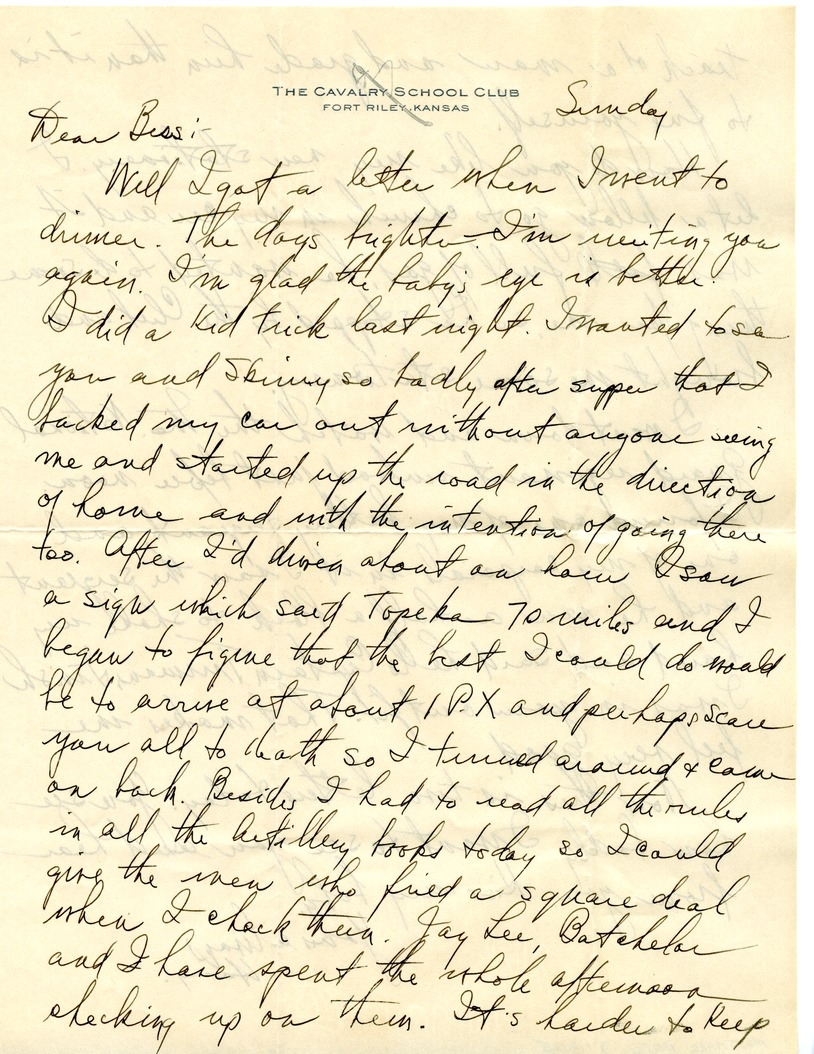 THE CAVALRY SCHOOL CLUB
FORT RILEY, KANSAS
Sunday
Dear Bess:-
Well I got a letter when I went to
dinner. The days brighter. I'm writing you
again. I'm glad the baby's eye is better.
I did a kid trick last night. I wanted to see
you and Skinny so badly after supper that I
backed my car out without anyone seeing
me and started up the road in the direction
of home and with the intention of going there
too. After I'd driven about an hour I saw
a sign which said Topeka 70 miles and I
began to figure that the best I could do would
be to arrive at about 1 P.X and perhaps scare
you all to death so I turned around & came
on back. Besides I had to read all the rules
in all the Artillery books today so I could
give the men who fired a square deal
when I check them. Jay Lee, Batchelor
and I have spent the whole afternoon
checking up on them. It's harder to keep